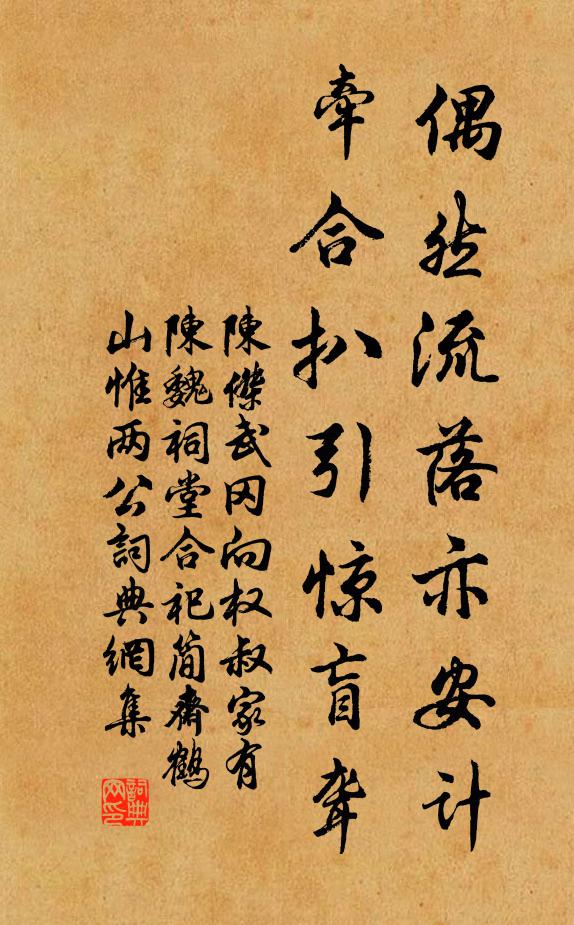 偶然流落亦安计
牵合扒引惊盲聋
陳傑武冈向权叔家有
陳魏祠堂合祀简齋鶴
山惟两公詞典網集
詞典网印